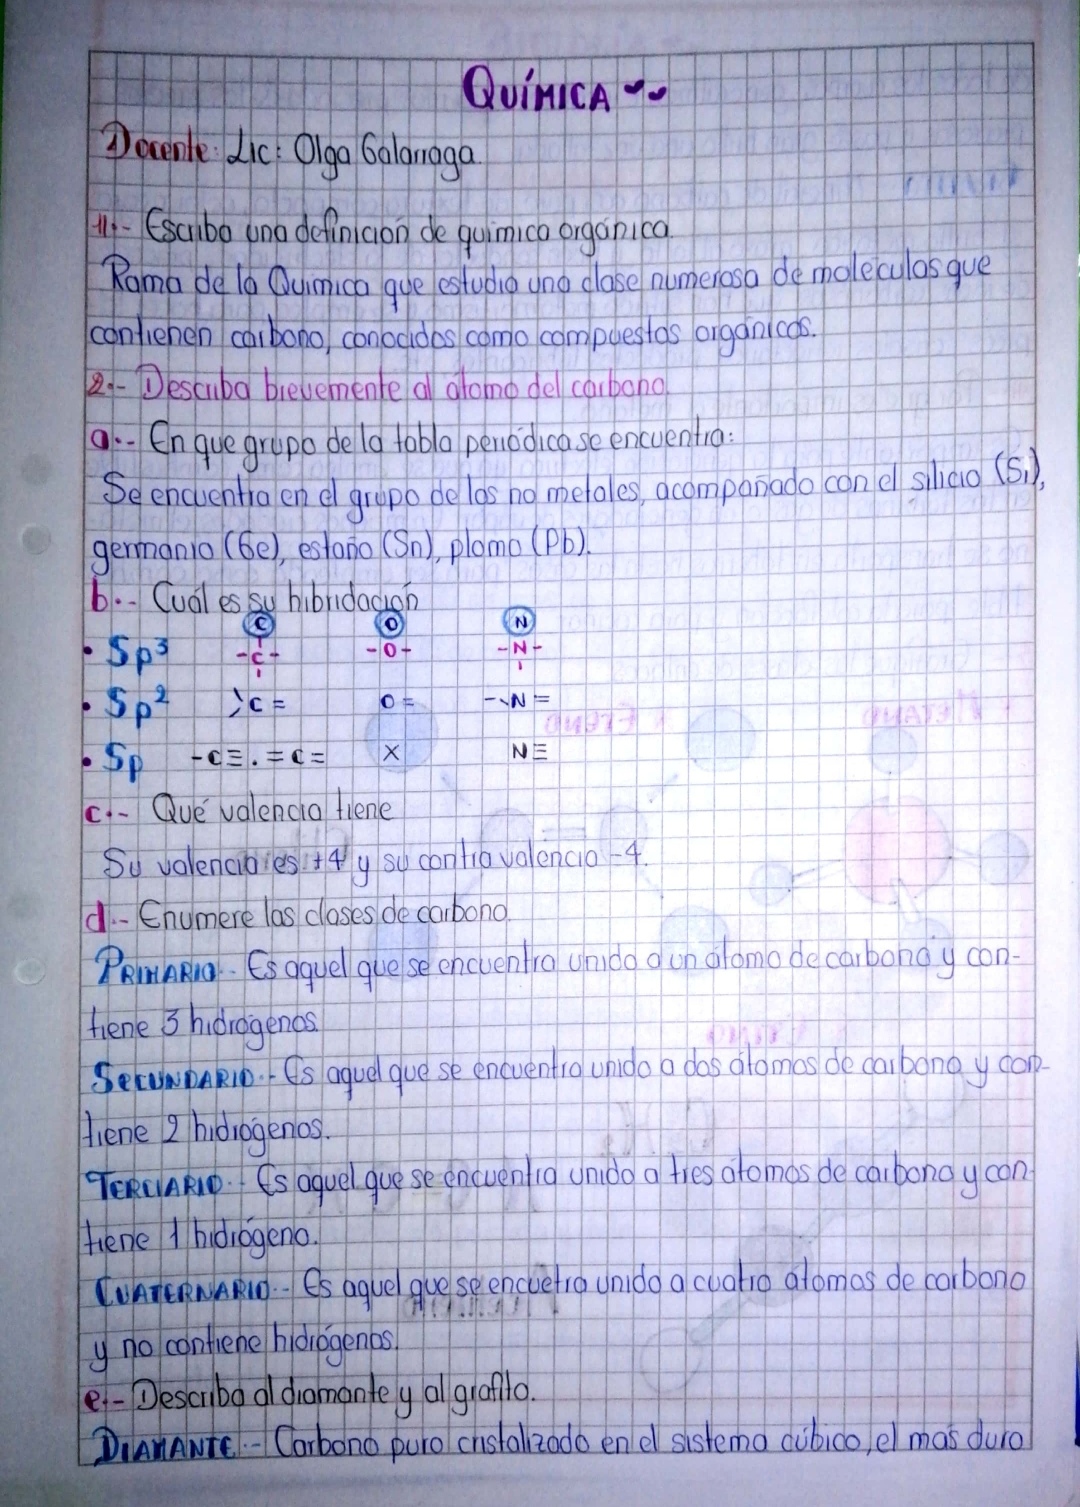 QUÍMICA
Docente: Lic: Olga Galarraga.
1.- Escriba una definición de química orgánica.
Rama de la Química que estudia una clase numerosa de moléculas que
contienen carbono, conocidos como compuestos orgánicos.
2.- Describa brevemente al átomo del carbono.
a.- En que grupo de la tabla periódica se encuentra:
Se encuentra en el grupo de los no metales, acompañado con el silicio (Si),
germanio (Ge), estaño (Sn), plomo (Pb).
b.- Cuál es su hibridación
C O N
• Sp³ -C- -O- -N-
• Sp² >C= O= -N=
• Sp -C≡. =C= X N≡
c.- Qué valencia tiene
Su valencia es +4 y su contra valencia -4.
d.- Enumere las clases de carbono.
PRIMARIO.- Es aquel que se encuentra unido a un átomo de carbono y con-
tiene 3 hidrógenos.
SECUNDARIO.- Es aquel que se encuentra unido a dos átomos de carbono y con-
tiene 2 hidrógenos.
TERCIARIO.- Es aquel que se encuentra unido a tres átomos de carbono y con
tiene 1 hidrógeno.
CUATERNARIO.- Es aquel que se encuetra unido a cuatro átomos de carbono
y no contiene hidrógenos.
e.- Describa al diamante y al grafito.
DIAMANTE.- Carbono puro cristalizado en el sistema cúbico, el más duro